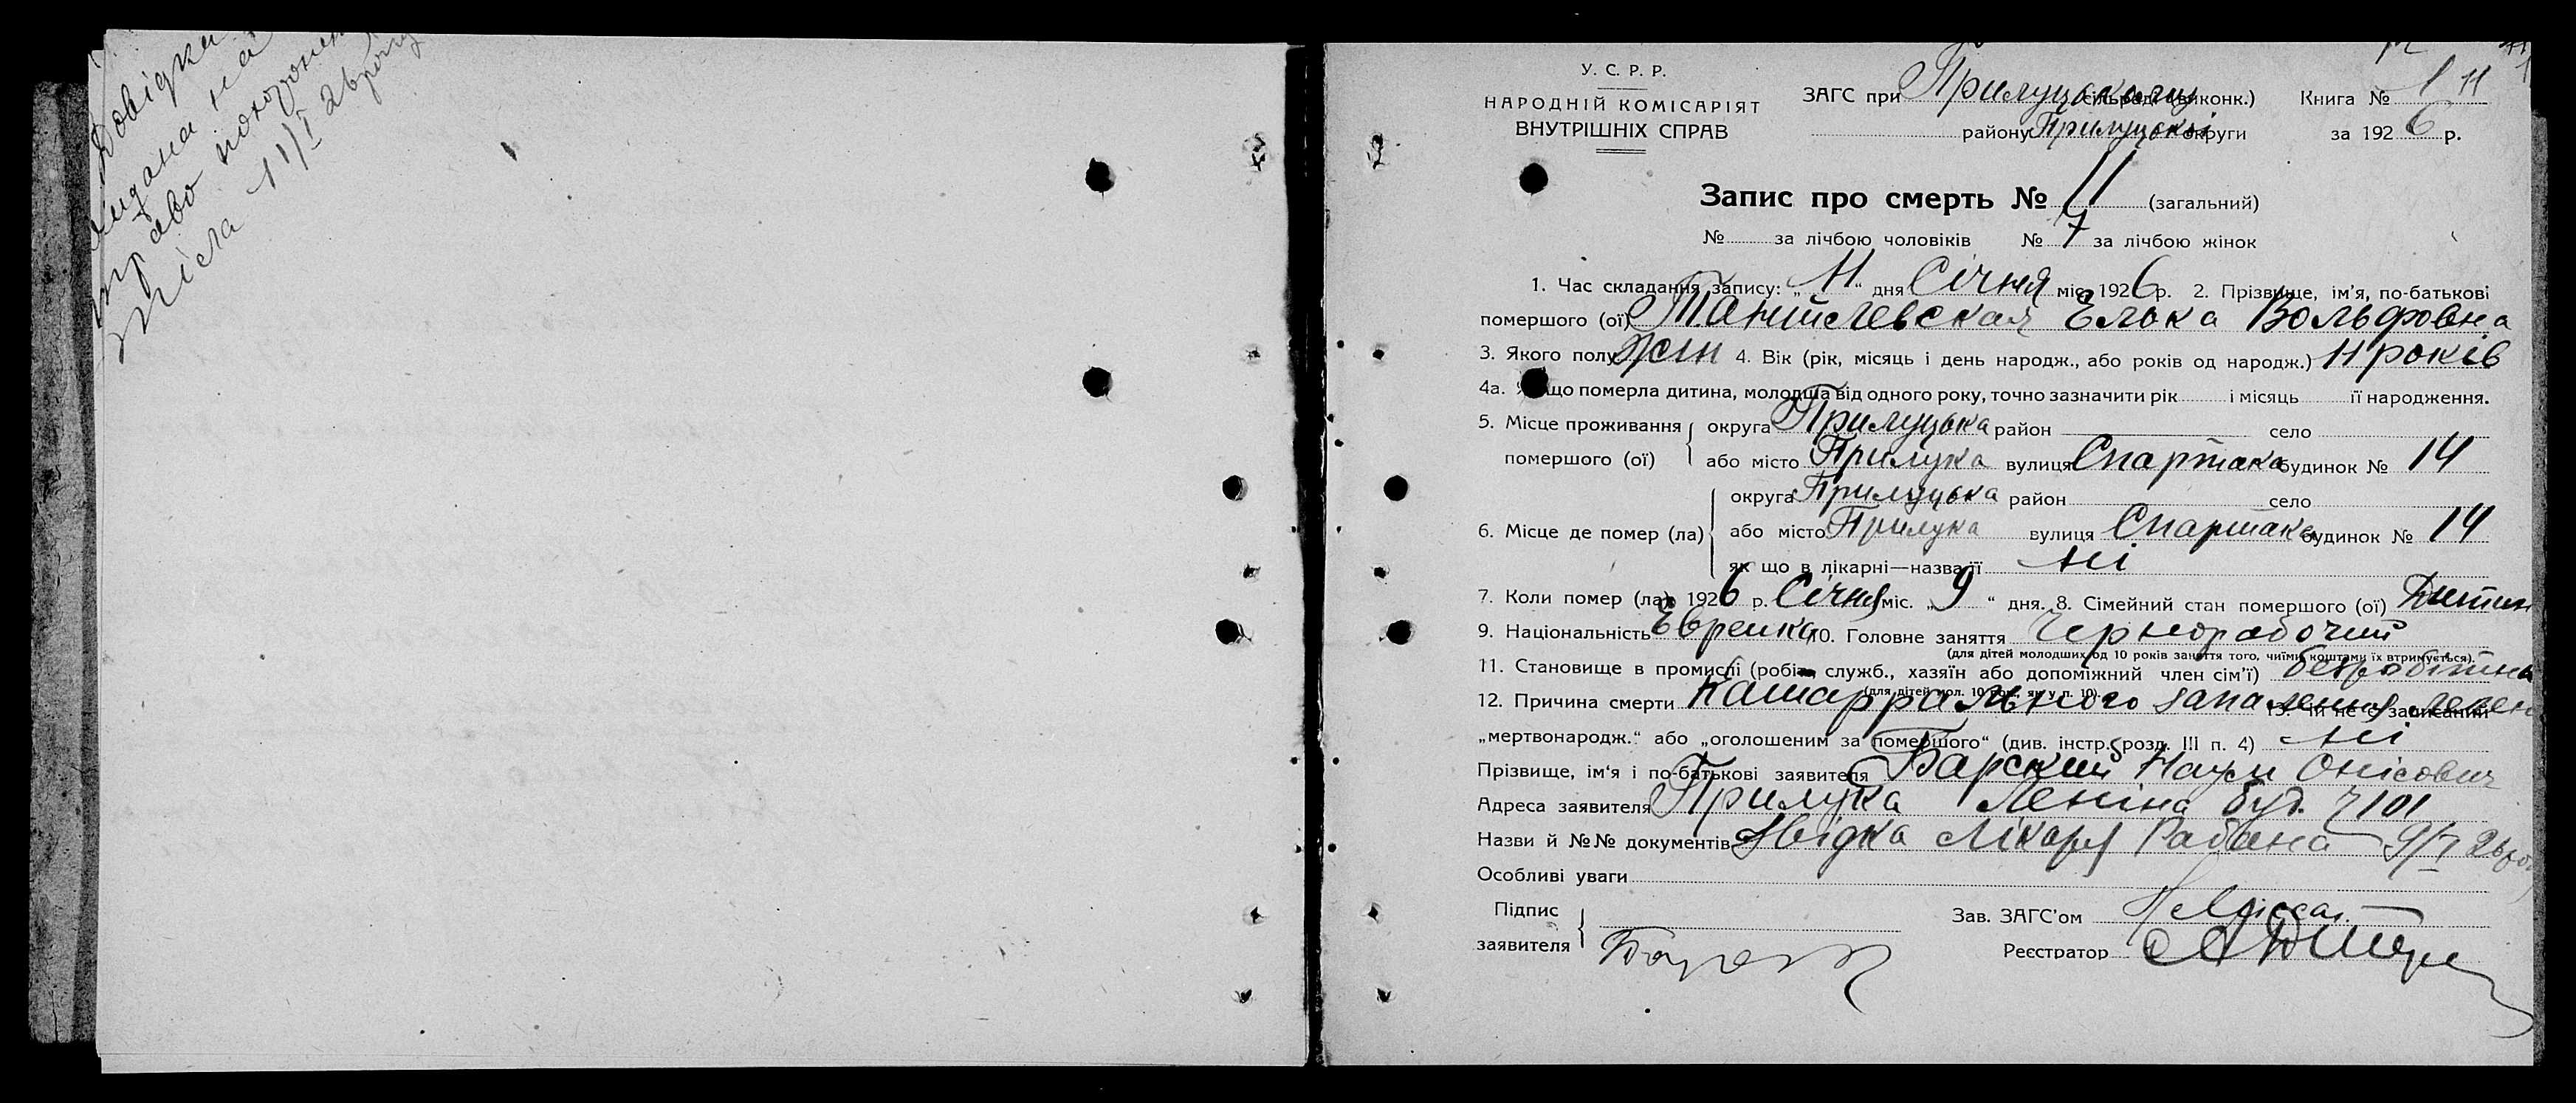 Довідка
видана на
право похорону
тіла 11/I 26 року
У. С. Р. Р.
НАРОДНІЙ КОМІСАРІЯТ
ВНУТРІШНІХ СПРАВ
ЗАГС при Прилуцькому сільраді (виконк.) Книга № 1
району Прилуцької округи за 1926 р.
11
Запис про смерть № 11 (загальний)
№ за лічбою чоловіків № 7 за лічбою жінок
1. Час складання запису: „11“ дня Січня міс. 1926 р. 2. Прізвище, ім'я, по-батькові
помершого (ої) Елька Вольфовна
3. Якого полу жін 4. Вік (рік, місяць і день народж., або років од народж.) 11 років
4а. Якщо померла дитина, молодша від одного року, точно зазначити рік і місяць її народження.
5. Місце проживання округа Прилуцька район село
помершого (ої) або місто Прилука вулиця Спартака будинок № 14
округа Прилуцька район село
6. Місце де помер (ла) або місто Прилука вулиця Спартака будинок № 14
як що в лікарні—назва її ні
7. Коли помер (ла) 1926 р. Січня міс. „9“ дня. 8. Сімейний стан помершого (ої) Дитин
9. Національність Еврейка 10. Головне заняття Чернорабочий
(для дітей молодших од 10 років заняття того, чиїми коштами їх втримується).
11. Становище в промислі (робітн., служб., хазяїн або допоміжний член сім'ї) безробітна
(для дітей мол. 10 рок., як у п. 10).
12. Причина смерти Катаррального запалення леген 13. Чи не є записаний
„мертвонародж.“ або „оголошеним за помершого“ (див. інстр. розд. III п. 4) ні
Прізвище, ім'я і по-батькові заявителя Барский Наум
Адреса заявителя Прилука Леніна буд. ч 101
Назви й №№ документів Звідка лікаря 9/I 26 р.
Особливі уваги
Підпис
заявителя
Зав. ЗАГС'ом
Реєстратор